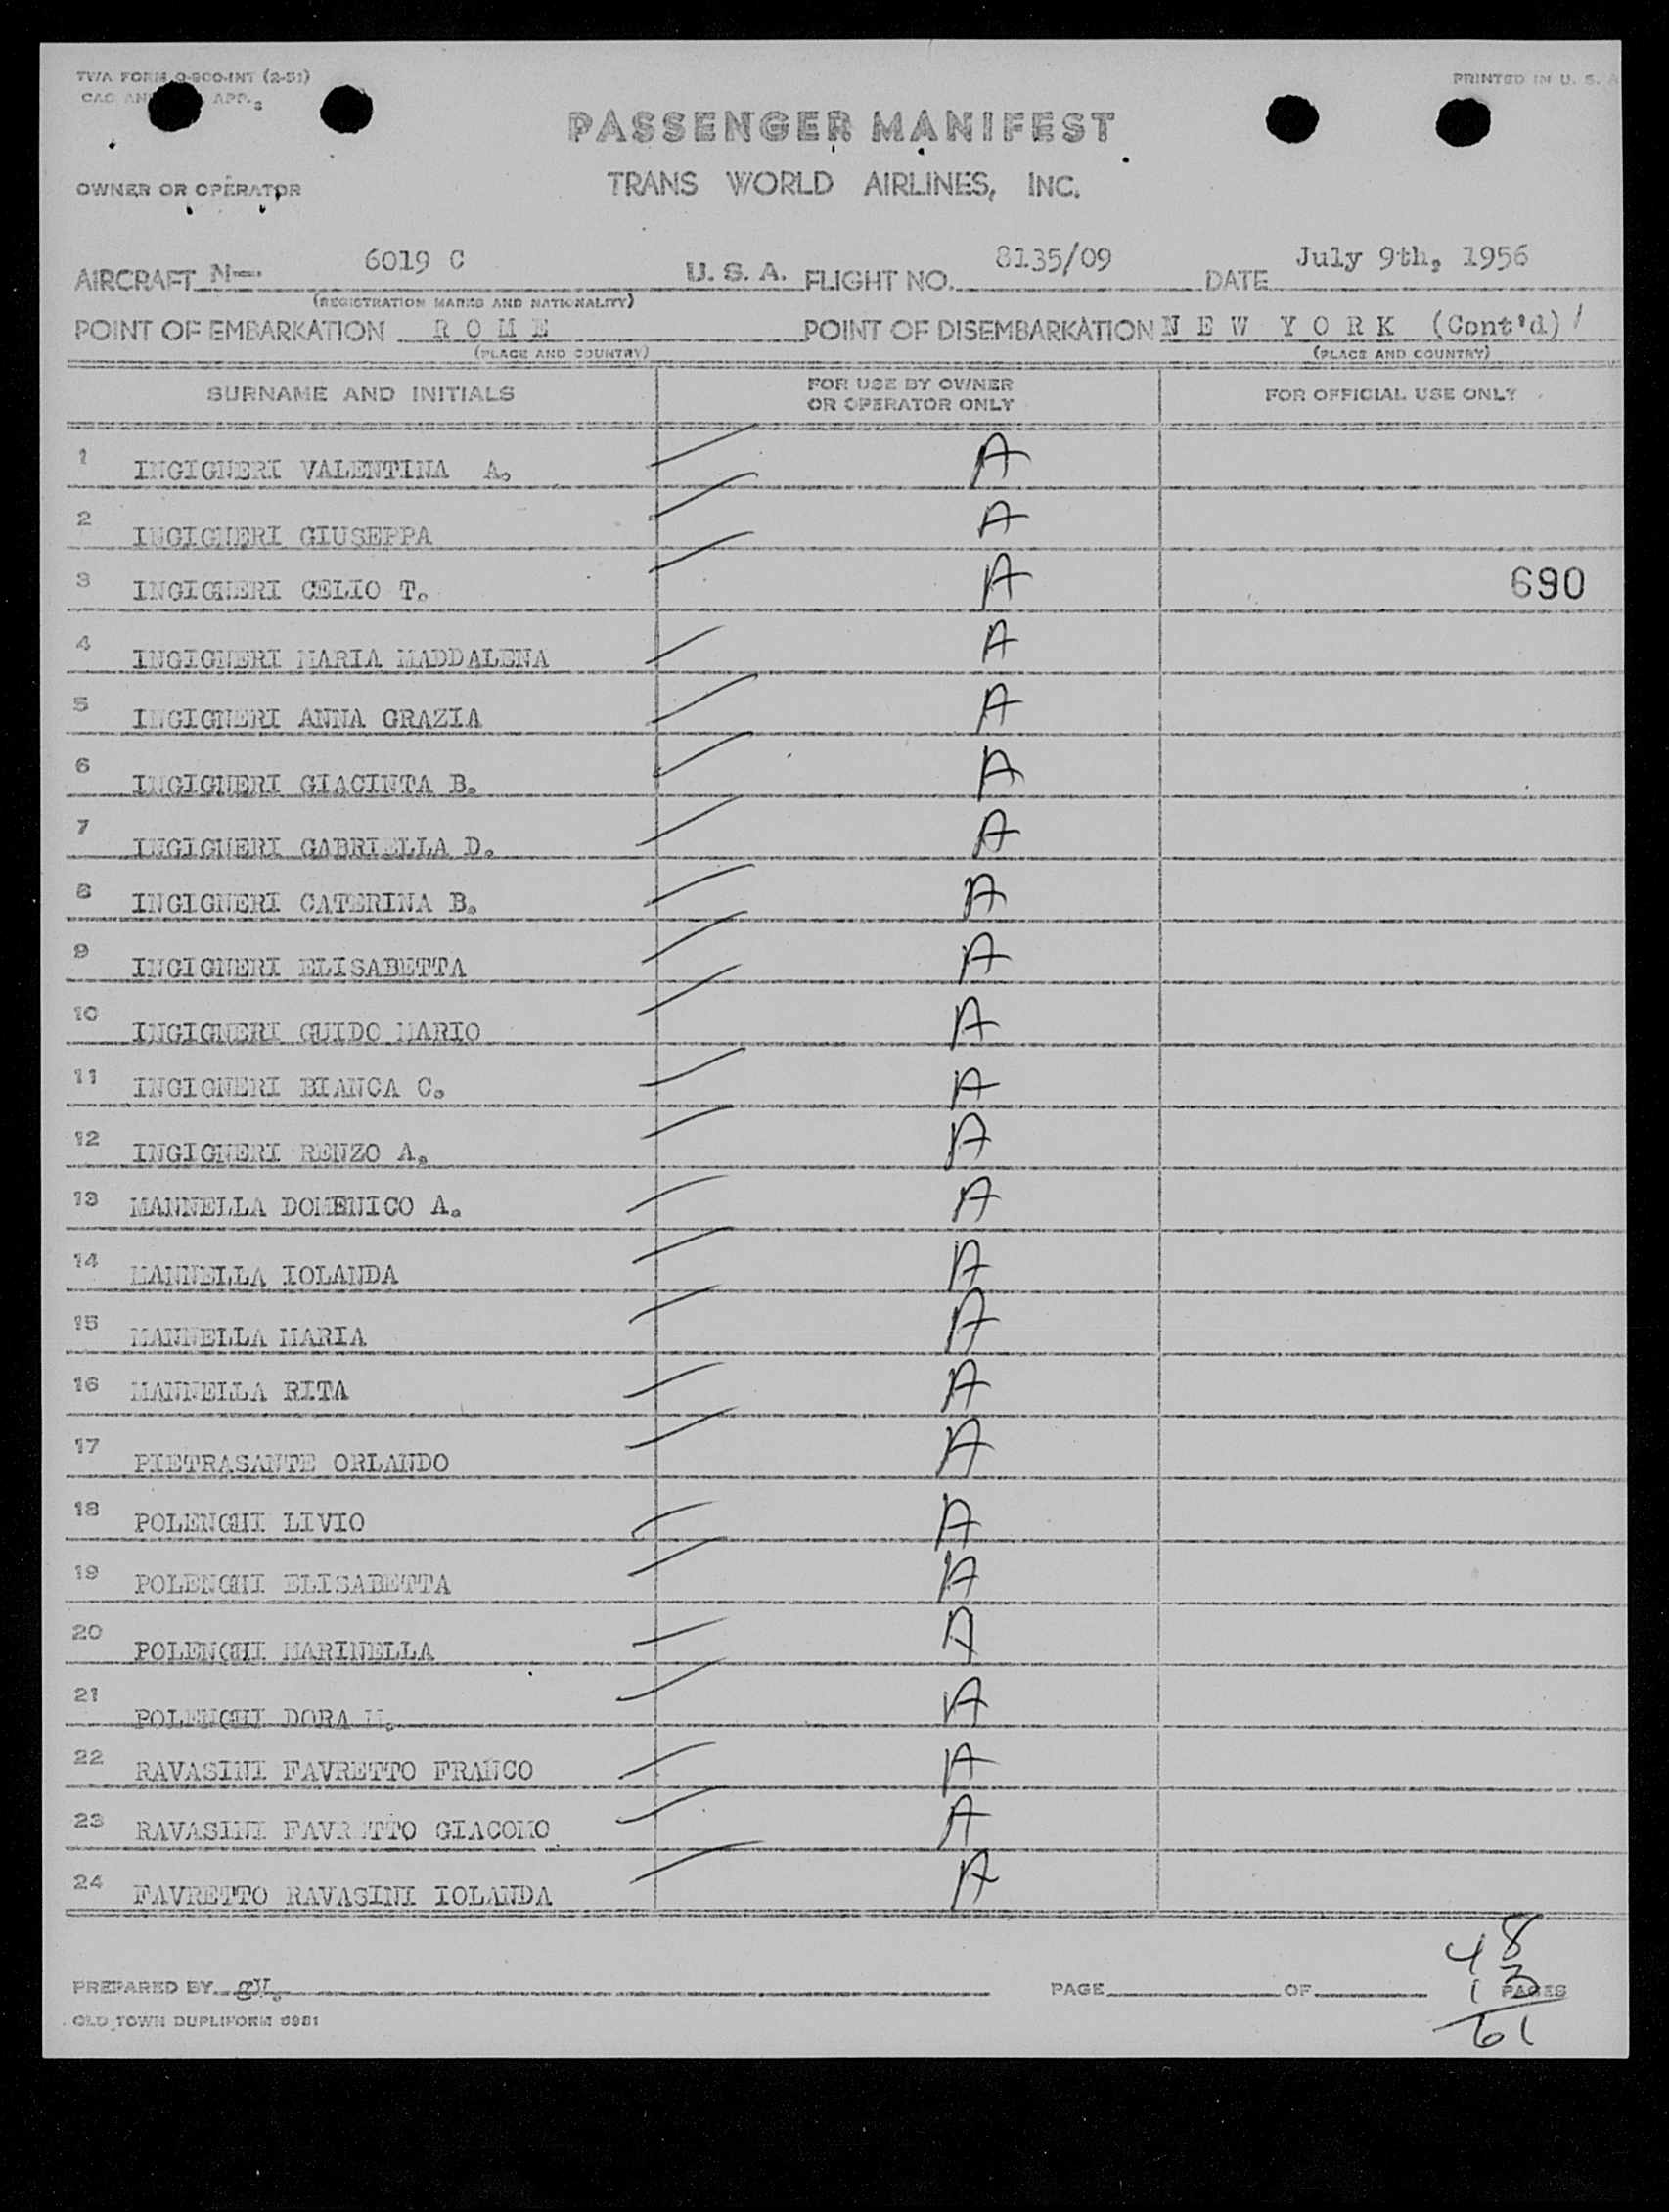 TWA FORM O-900-INT (2-51)
PRINTED IN U. S. A
CAC AN APP.
PASSENGER MANIFEST
OWNER OR OPERATOR
TRANS WORLD AIRLINES, INC.
AIRCRAFT N— 6019 C U. S. A. FLIGHT NO. 8135/09 DATE July 9th, 1956
(REGISTRATION MARKS AND NATIONALITY)
POINT OF EMBARKATION R O M E POINT OF DISEMBARKATION N E W Y O R K (Cont'd) /
(PLACE AND COUNTRY) (PLACE AND COUNTRY)
SURNAME AND INITIALS
FOR USE BY OWNER
OR OPERATOR ONLY
FOR OFFICIAL USE ONLY
1 INGIGNERI VALENTINA A. A
2 INGIGNERI GIUSEPPA A
3 INGIGNERI CELIO T. A 690
4 INGIGNERI MARIA MADDALENA A
5 INGIGNERI ANNA GRAZIA A
6 INGIGNERI GIACINTA B. A
7 INGIGNERI GABRIELLA D. A
8 INGIGNERI CATERINA B. A
9 INGIGNERI ELISABETTA A
10 INGIGNERI GUIDO MARIO A
11 INGIGNERI BIANCA C. A
12 INGIGNERI RENZO A. A
13 MANNELLA DOMENICO A. A
14 MANNELLA IOLANDA A
15 MANNELLA MARIA A
16 MANNELLA RITA A
17 PIETRASANTE ORLANDO A
18 POLENGHI LIVIO A
19 POLENGHI ELISABETTA A
20 POLENGHI MARINELLA A
21 POLENGHI DORA M. A
22 RAVASINI FAVRETTO FRANCO A
23 RAVASINI FAVRETTO GIACOMO A
24 FAVRETTO RAVASINI IOLANDA A
48
13
61
PREPARED BY PAGE OF PAGES
OLD TOWN DUPLIFORM 9981